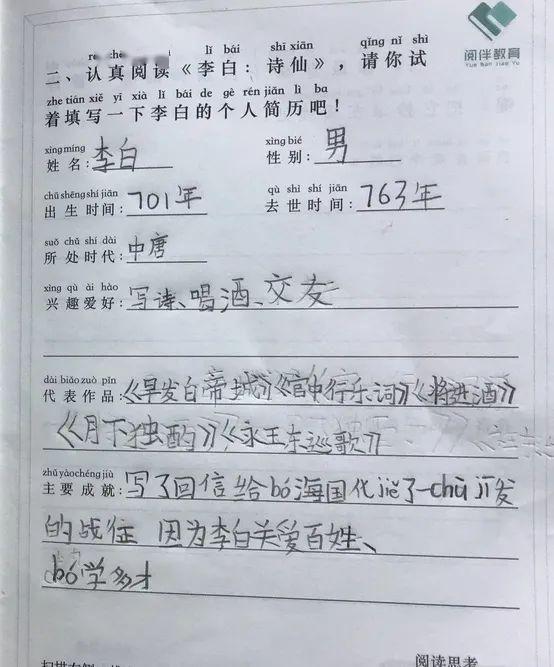 阅伴教育
Yue Ban Jiao Yu
lǐ bái shī xiān qǐng nǐ shì
二、认真阅读《李白：诗仙》，请你试
zhe tián xiě yī xià lǐ bái de gè rén jiǎn lì ba
着填写一下李白的个人简历吧！
xìng míng xìng bié
姓名：李白 性别：男
chū shēng shí jiān qù shì shí jiān
出生时间：701年 去世时间：763年
suǒ chǔ shí dài
所处时代：中唐
xìng qù ài hào
兴趣爱好：写诗、喝酒、交友
dài biǎo zuò pǐn
代表作品：《早发白帝城》《宫中行乐词》《将进酒》
《月下独酌》《永王东巡歌》
zhǔ yào chéng jiù
主要成就：写了回信给bó海国代jiě了一chù jī发
的战征 因为李白关爱百姓、
bó学多才
阅读思考